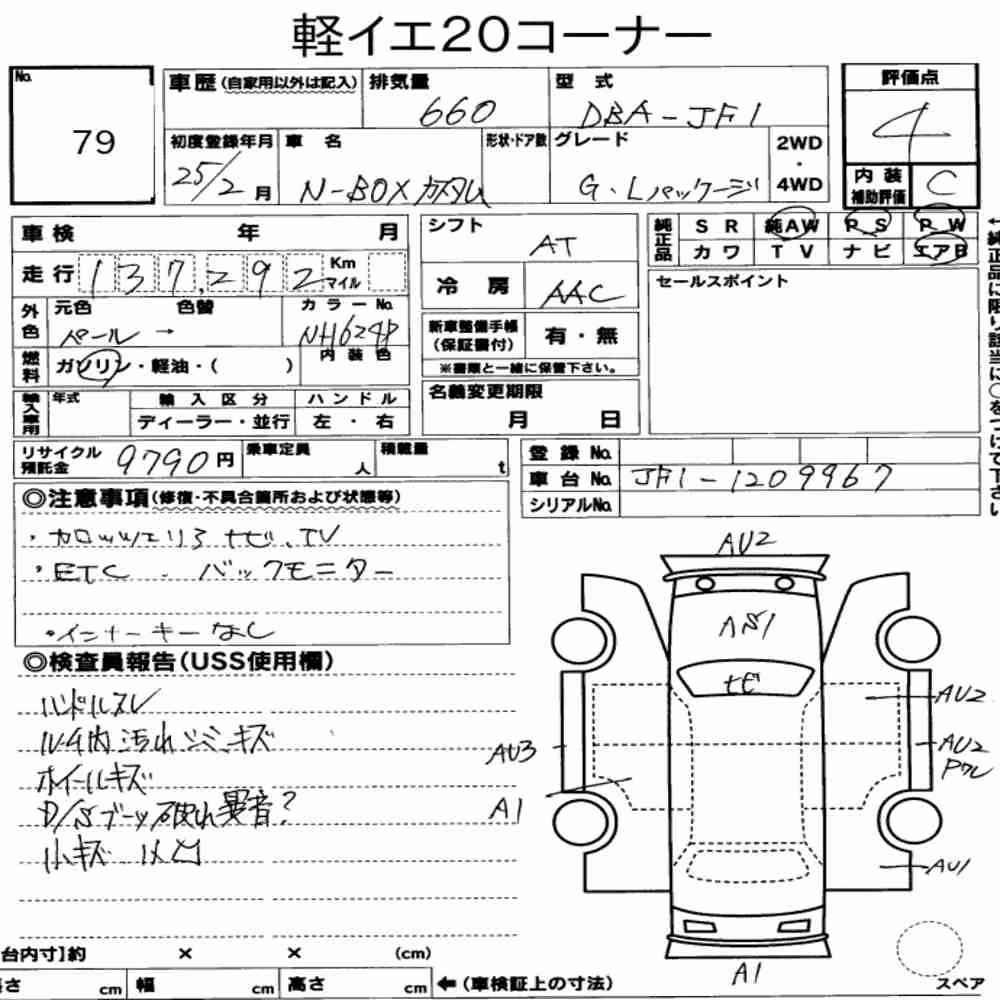 軽イエ20コーナー
No.
79
車歴(自家用以外は記入)
排気量
660
型式
DBA-JF1
評価点
4
初度登録年月
25/2月
車名
N-BOXカスタム
形状・ドア数
グレード
G・Lパッケージ
2WD
・
4WD
内装
補助評価
C
車検 年 月
走行 137,292 Km
マイル
シフト
AT
冷房
AAC
純正品
SR 純AW PS PW
カワ TV ナビ エアB
←純正品に限り該当に○をつけて下さい
セールスポイント
外色
元色 色替
パール →
カラーNo.
NH624P
内装色
燃料
ガソリン・軽油・( )
新車整備手帳
(保証書付)
有・無
※書類と一緒に保管下さい。
名義変更期限
月 日
輸入車用
年式
輸入区分
ディーラー・並行
ハンドル
左・右
リサイクル
預託金
9790円
乗車定員
人
積載量
t
登録No.
車台No. JF1-1209967
シリアルNo.
◎注意事項(修復・不具合箇所および状態等)
・カロッツェリア ナビ、TV
・ETC . バックモニター
・インナーキーなし
◎検査員報告(USS使用欄)
ハンドルスレ
ルーム内汚れ シミ キズ
ホイールキズ
D/Sブーツ破れ異音?
小キズ 凹
AU2
ナビ
AU2
AU3
AU2
A1
AU1
A1
スペア
台内寸]約 × × (cm)
長さ cm 幅 cm 高さ cm ←(車検証上の寸法)